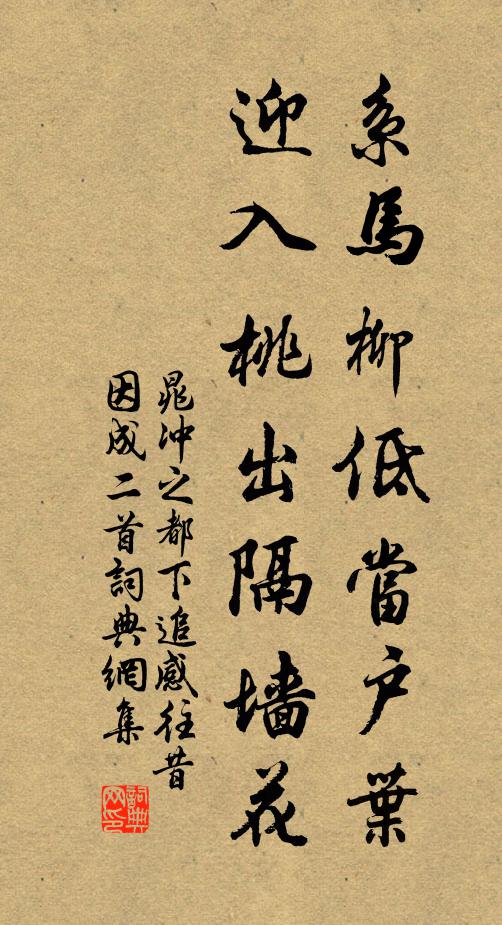 系馬柳低當户葉
迎入桃出隔墙花
晁沖之都下追感往昔
因成二首詞典網集
詞典网印